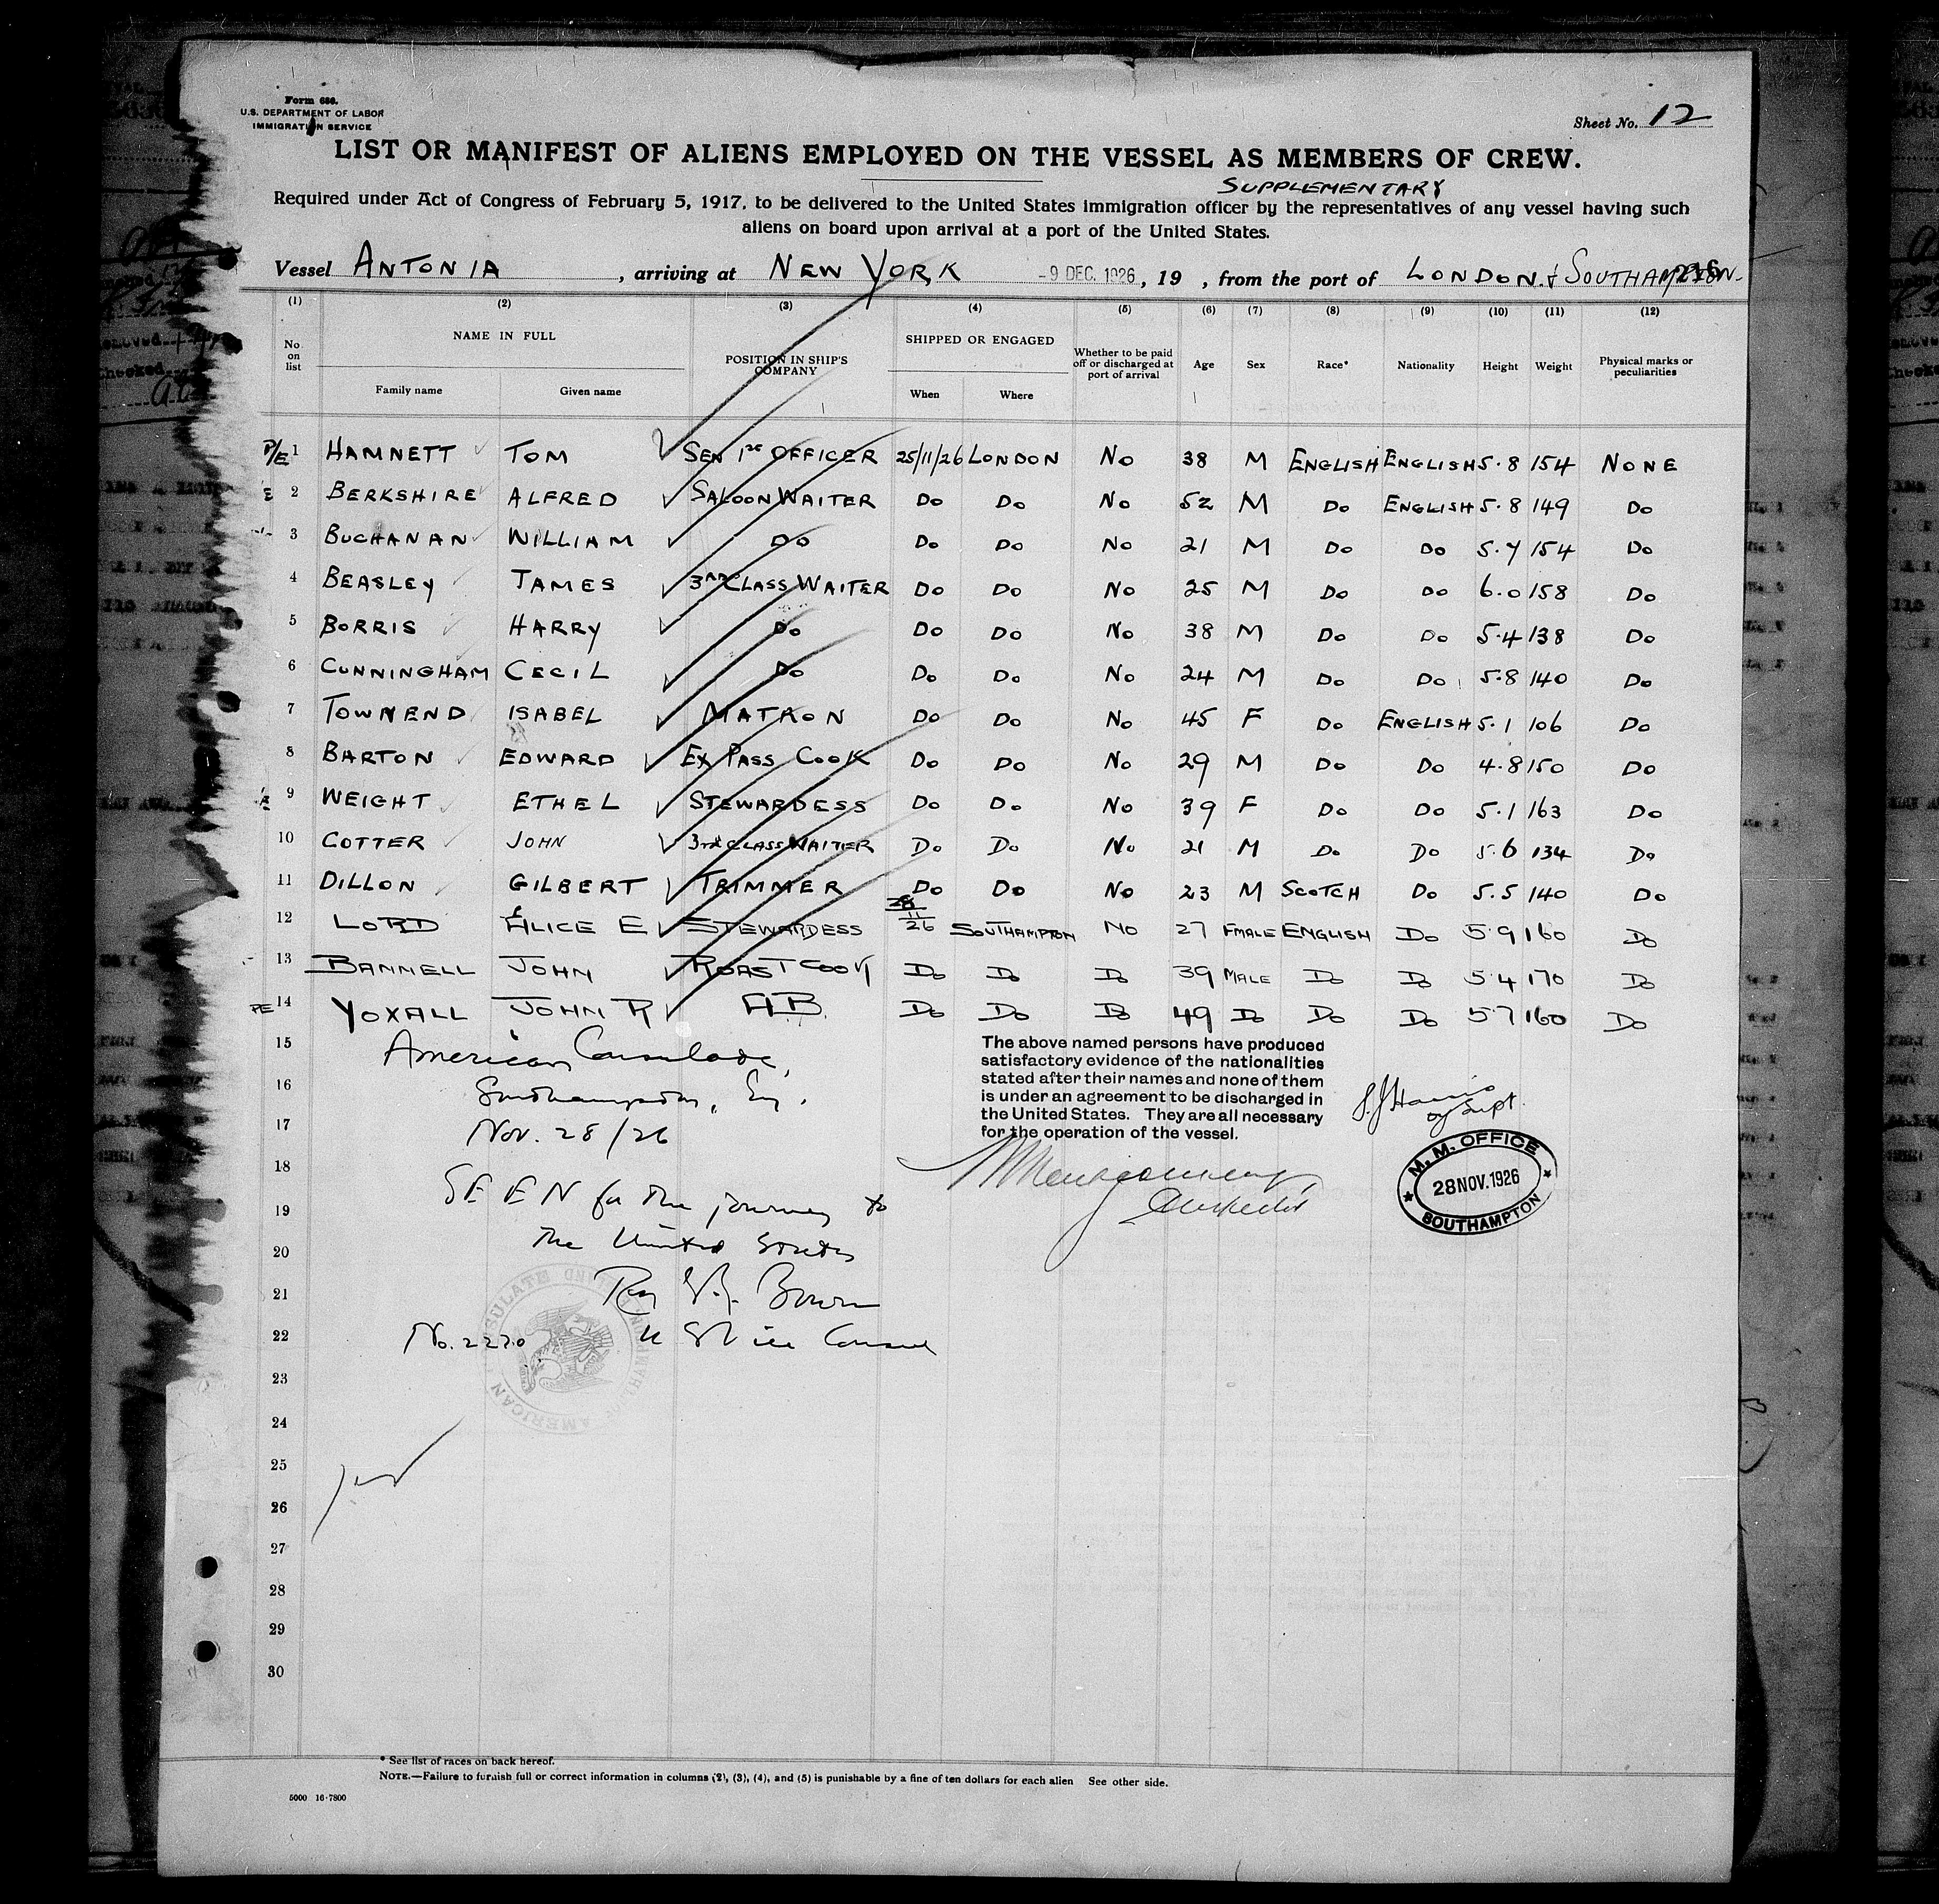 Form 686.
U.S. DEPARTMENT OF LABOR
IMMIGRATION SERVICE
Sheet No. 12
LIST OR MANIFEST OF ALIENS EMPLOYED ON THE VESSEL AS MEMBERS OF CREW.
SUPPLEMENTARY
Required under Act of Congress of February 5, 1917, to be delivered to the United States immigration officer by the representatives of any vessel having such
aliens on board upon arrival at a port of the United States.
Vessel ANTONIA, arriving at NEW YORK -9 DEC. 1926, 19 , from the port of LONDON & SOUTHAMPTON
(1) (2) (3) (4) (5) (6) (7) (8) (9) (10) (11) (12)
No. on list NAME IN FULL Family name Given name POSITION IN SHIP'S COMPANY SHIPPED OR ENGAGED When Where Whether to be paid off or discharged at port of arrival Age Sex Race* Nationality Height Weight Physical marks or peculiarities
P/E 1 HAMNETT TOM SEN 1ST OFFICER 25/11/26 LONDON No 38 M ENGLISH ENGLISH 5.8 154 NONE
2 BERKSHIRE ALFRED SALOON WAITER Do Do No 52 M Do ENGLISH 5.8 149 Do
3 BUCHANAN WILLIAM Do Do Do No 21 M Do Do 5.7 154 Do
4 BEASLEY JAMES 3RD CLASS WAITER Do Do No 25 M Do Do 6.0 158 Do
5 BORRIS HARRY Do Do Do No 38 M Do Do 5.4 138 Do
6 CUNNINGHAM CECIL Do Do Do No 24 M Do Do 5.8 140 Do
7 TOWNEND ISABEL MATRON Do Do No 45 F Do ENGLISH 5.1 106 Do
8 BARTON EDWARD EX PASS COOK Do Do No 29 M Do Do 4.8 150 Do
9 WEIGHT ETHEL STEWARDESS Do Do No 39 F Do Do 5.1 163 Do
10 COTTER JOHN 3rd CLASS WAITER Do Do No 21 M Do Do 5.6 134 Do
11 DILLON GILBERT TRIMMER Do Do No 23 M SCOTCH Do 5.5 140 Do
12 LORD ALICE E STEWARDESS 28/11/26 SOUTHAMPTON No 27 FMALE ENGLISH Do 5.9 160 Do
13 BANNELL JOHN ROAST COOK Do Do Do 39 MALE Do Do 5.4 170 Do
PE 14 YOXALL JOHN R AB Do Do Do 49 Do Do Do 5.7 160 Do
15 American Consulate,
16 Southampton, Eng.
17 Nov. 28/26
The above named persons have produced
satisfactory evidence of the nationalities
stated after their names and none of them
is under an agreement to be discharged in
the United States. They are all necessary
for the operation of the vessel.
M. M. OFFICE
28 NOV. 1926
SOUTHAMPTON
18
19 SEEN for the journey to
20 the United States
21
22 No. 2270 U S Vice Consul
AMERICAN CONSULATE
23
24
25
26
27
28
29
30
* See list of races on back hereof.
NOTE.—Failure to furnish full or correct information in columns (2), (3), (4), and (5) is punishable by a fine of ten dollars for each alien See other side.
5000 16-7800